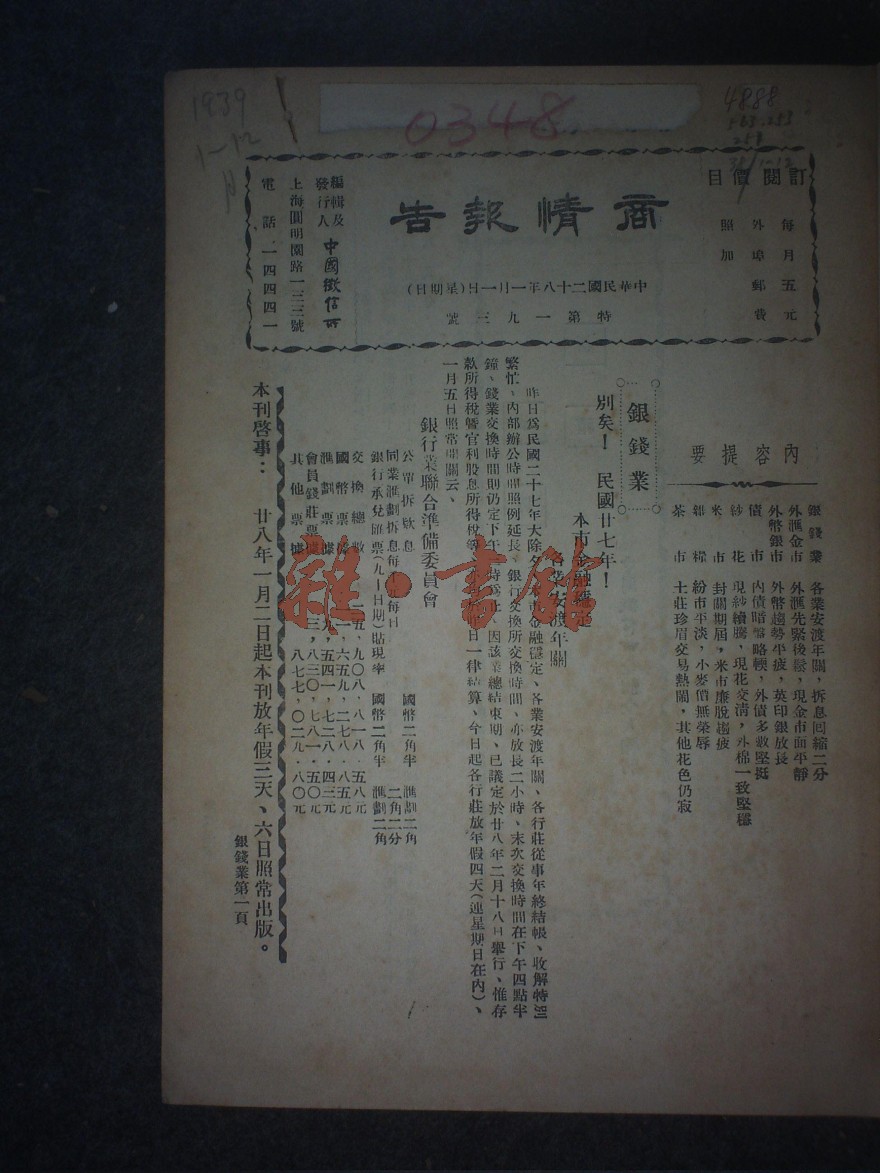 1939
1-12
月
0348
4888
訂閱價目
每月五元
外埠郵費
照加
商情報告
中華民國二十八年一月一日(星期日)
特第一九三號
編輯及
發行人
中國徵信所
上海圓明園路一三三號
電話 一四四四一
內容提要
銀錢業 各業安渡年關，拆息回縮二分
外滙金市 外滙先緊後鬆，現金市面平靜
外幣銀市 外幣趨勢平疲，英印銀放長
債市 內債暗盤略輭，外債多數堅挺
紗花 現紗續騰，現花交淸，外棉一致堅穩
米市 封關期屆，米市廉脫趨疲
雜糧 粉市平淡，小麥價無榮辱
茶市 土莊珍眉交易熱鬧，其他花色仍寂
銀錢業
別矣！ 民國廿七年！
本市金融穩定
各業安渡年關
昨日爲民國二十七年大除夕、本市金融穩定、各業安渡年關、各行莊從事年終結帳、收解特別
繁忙、內部辦公時間照例延長、銀行交換所交換時間、亦放長二小時、末次交換時間在下午四點半
鐘、錢業交換時間則仍定下午 時爲止、因該業總結束期、已議定於廿八年二月十八日舉行、惟存
款所得稅曁官利股息所得稅等、 日一律結算、今日起各行莊放年假四天(連星期日在內)、
一月五日照常開關云、
銀行業聯合準備委員會
公單拆款息 每 國幣二角半 滙劃二角
同業滙劃拆息 每 每日 二角二分
銀行承兌滙票(九 日期)貼現率 國幣二角半 滙劃二角
交換總數 二五，九〇八，八一八・五八元
國幣票據 一，六五九，二七八・八五元
滙劃票據 九，五四一，七二八・四三元
會員錢莊票據 三，八三〇，七八一・五〇元
其他票據 八七七，〇二九・八〇元
本刊啓事： 廿八年一月二日起本刊放年假三天、六日照常出版。
銀錢業第一頁
雜・書館